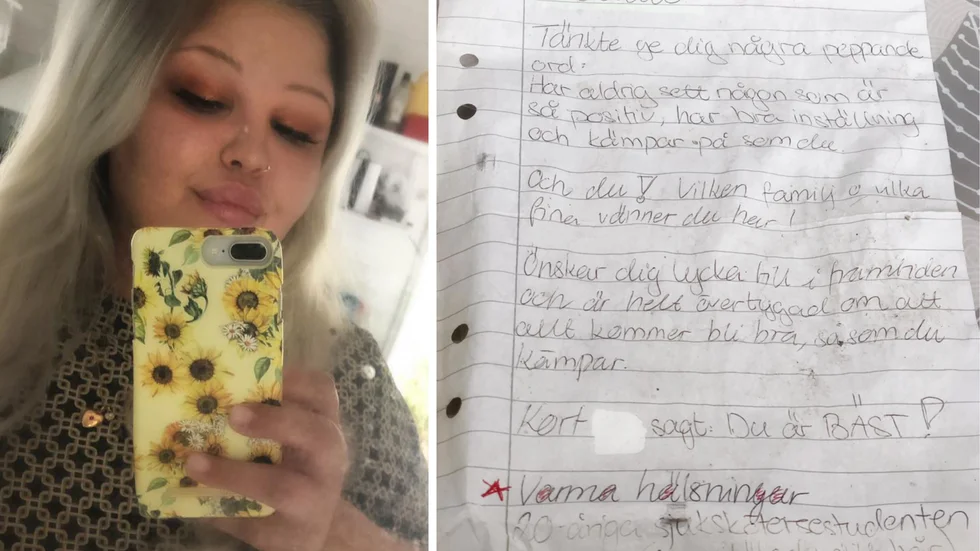 Tänkte ge dig några peppande
ord:
Har aldrig sett någon som är
så positiv, har bra inställning
och kämpar på som du.
Och du! Vilken familj o vilka
fina vänner du har!
Önskar dig lycka till i framtiden
och är helt övertygad om att
allt kommer bli bra, så som du
kämpar.
Kort sagt: Du är BÄST!
Varma hälsningar
20-åriga sjuksköterskestudenten